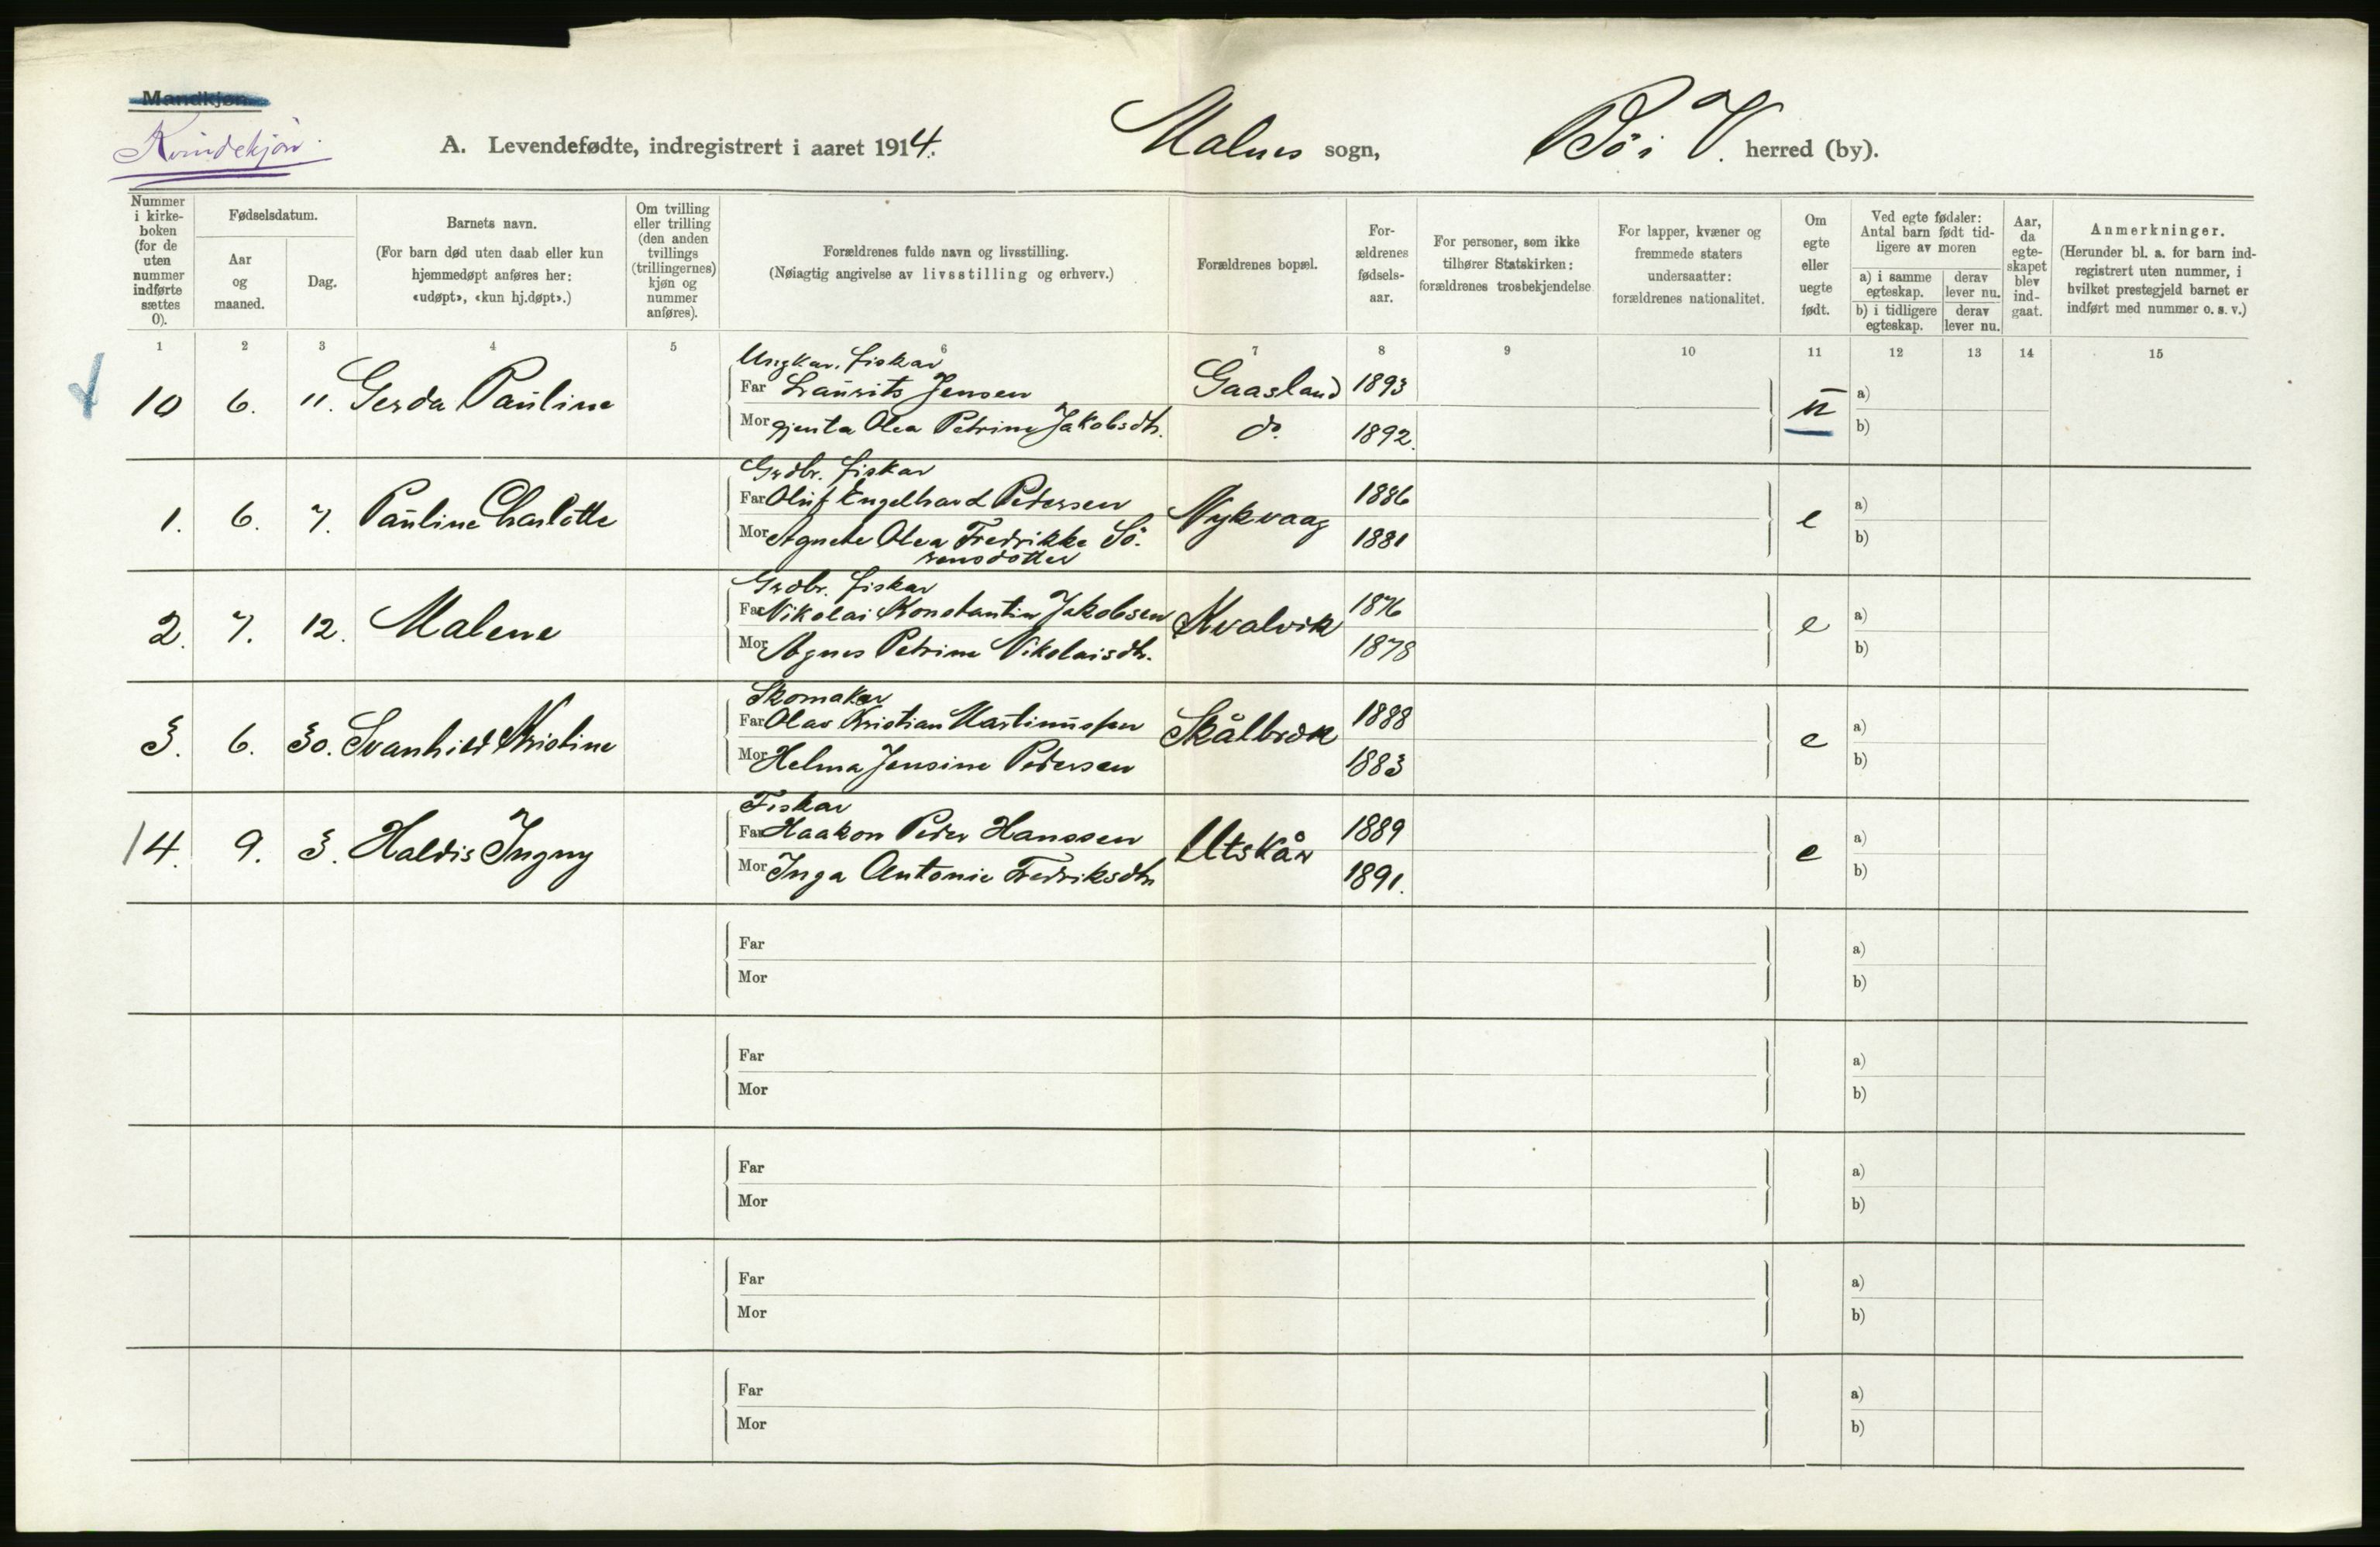 Mandkjøn.
Kvindekjøn.
A. Levendefødte, indregistrert i aaret 1914.
Malnes sogn,
Bö i V. herred (by).
Nummer i kirkeboken (for de uten nummer indførte sættes 0).
Fødselsdatum.
Aar og maaned.
Dag.
Barnets navn.
(For barn død uten daab eller kun hjemmedøpt anføres her: «udøpt», «kun hj.døpt».)
Om tvilling eller trilling (den anden tvillings (trillingernes) kjøn og nummer anføres).
Forældrenes fulde navn og livsstilling.
(Nøiagtig angivelse av livsstilling og erhverv.)
Forældrenes bopæl.
Forældrenes fødselsaar.
For personer, som ikke tilhører Statskirken: forældrenes trosbekjendelse
For lapper, kvæner og fremmede staters undersaatter: forældrenes nationalitet.
Om egte eller uegte født.
Ved egte fødsler: Antal barn født tidligere av moren
a) i samme egteskap.
derav lever nu.
b) i tidligere egteskap.
derav lever nu.
Aar, da egteskapet blev indgaat.
Anmerkninger.
(Herunder bl. a. for barn indregistrert uten nummer, i hvilket prestegjeld barnet er indført med nummer o. s. v.)
1 2 3 4 5 6 7 8 9 10 11 12 13 14 15
Ungkar, fiskar
10 6. 11. Gerda Pauline Far Laurits Jensen Gaasland 1893 u a)
Mor gjenta Olea Petrine Jakobsdtr. do. 1892. b)
Grdbr. fiskar
1. 6. 7. Pauline Charlotte Far Oluf Engelhard Pedersen Nykvaag 1886 e a)
Mor Agnete Olea Fredrikke Sö- 1881 b)
rensdotter
Grdbr. fiskar
2. 7. 12. Malene Far Nikolai Konstantin Jakobsen Kvalvik 1876 e a)
Mor Agnes Petrine Nikolaisdtr. 1878 b)
Skomaker
3. 6. 30. Svanhild Kristine Far Olav Kristian Martinussen Skålbrek 1888 e a)
Mor Helma Jensine Pedersen 1883 b)
Fiskar
14. 9. 3. Haldis Ingny Far Haakon Peder Hanssen Utskår 1889 e a)
Mor Inga Antonie Fredriksdtr 1891. b)
Far a)
Mor b)
Far a)
Mor b)
Far a)
Mor b)
Far a)
Mor b)
Far a)
Mor b)